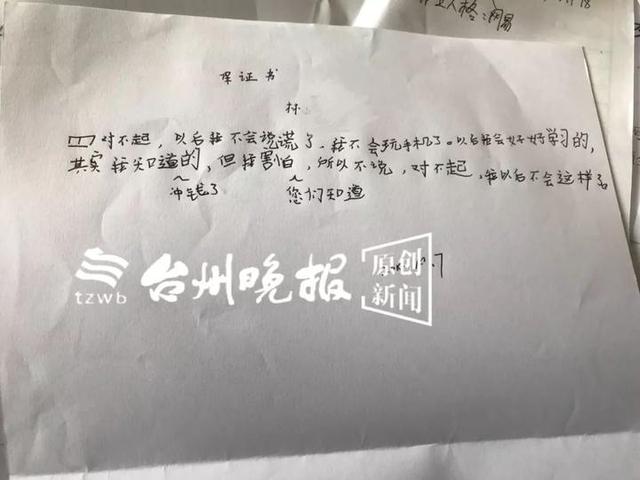 人格：网易
保证书
林
对不起，以后我不会说谎了，我不会玩手机了。以后我会好好学习的，
其实我知道的，但我害怕，所以不说，对不起，我以后不会这样了。
冲钱了 您们知道
tzwb 台州晚报 原创新闻